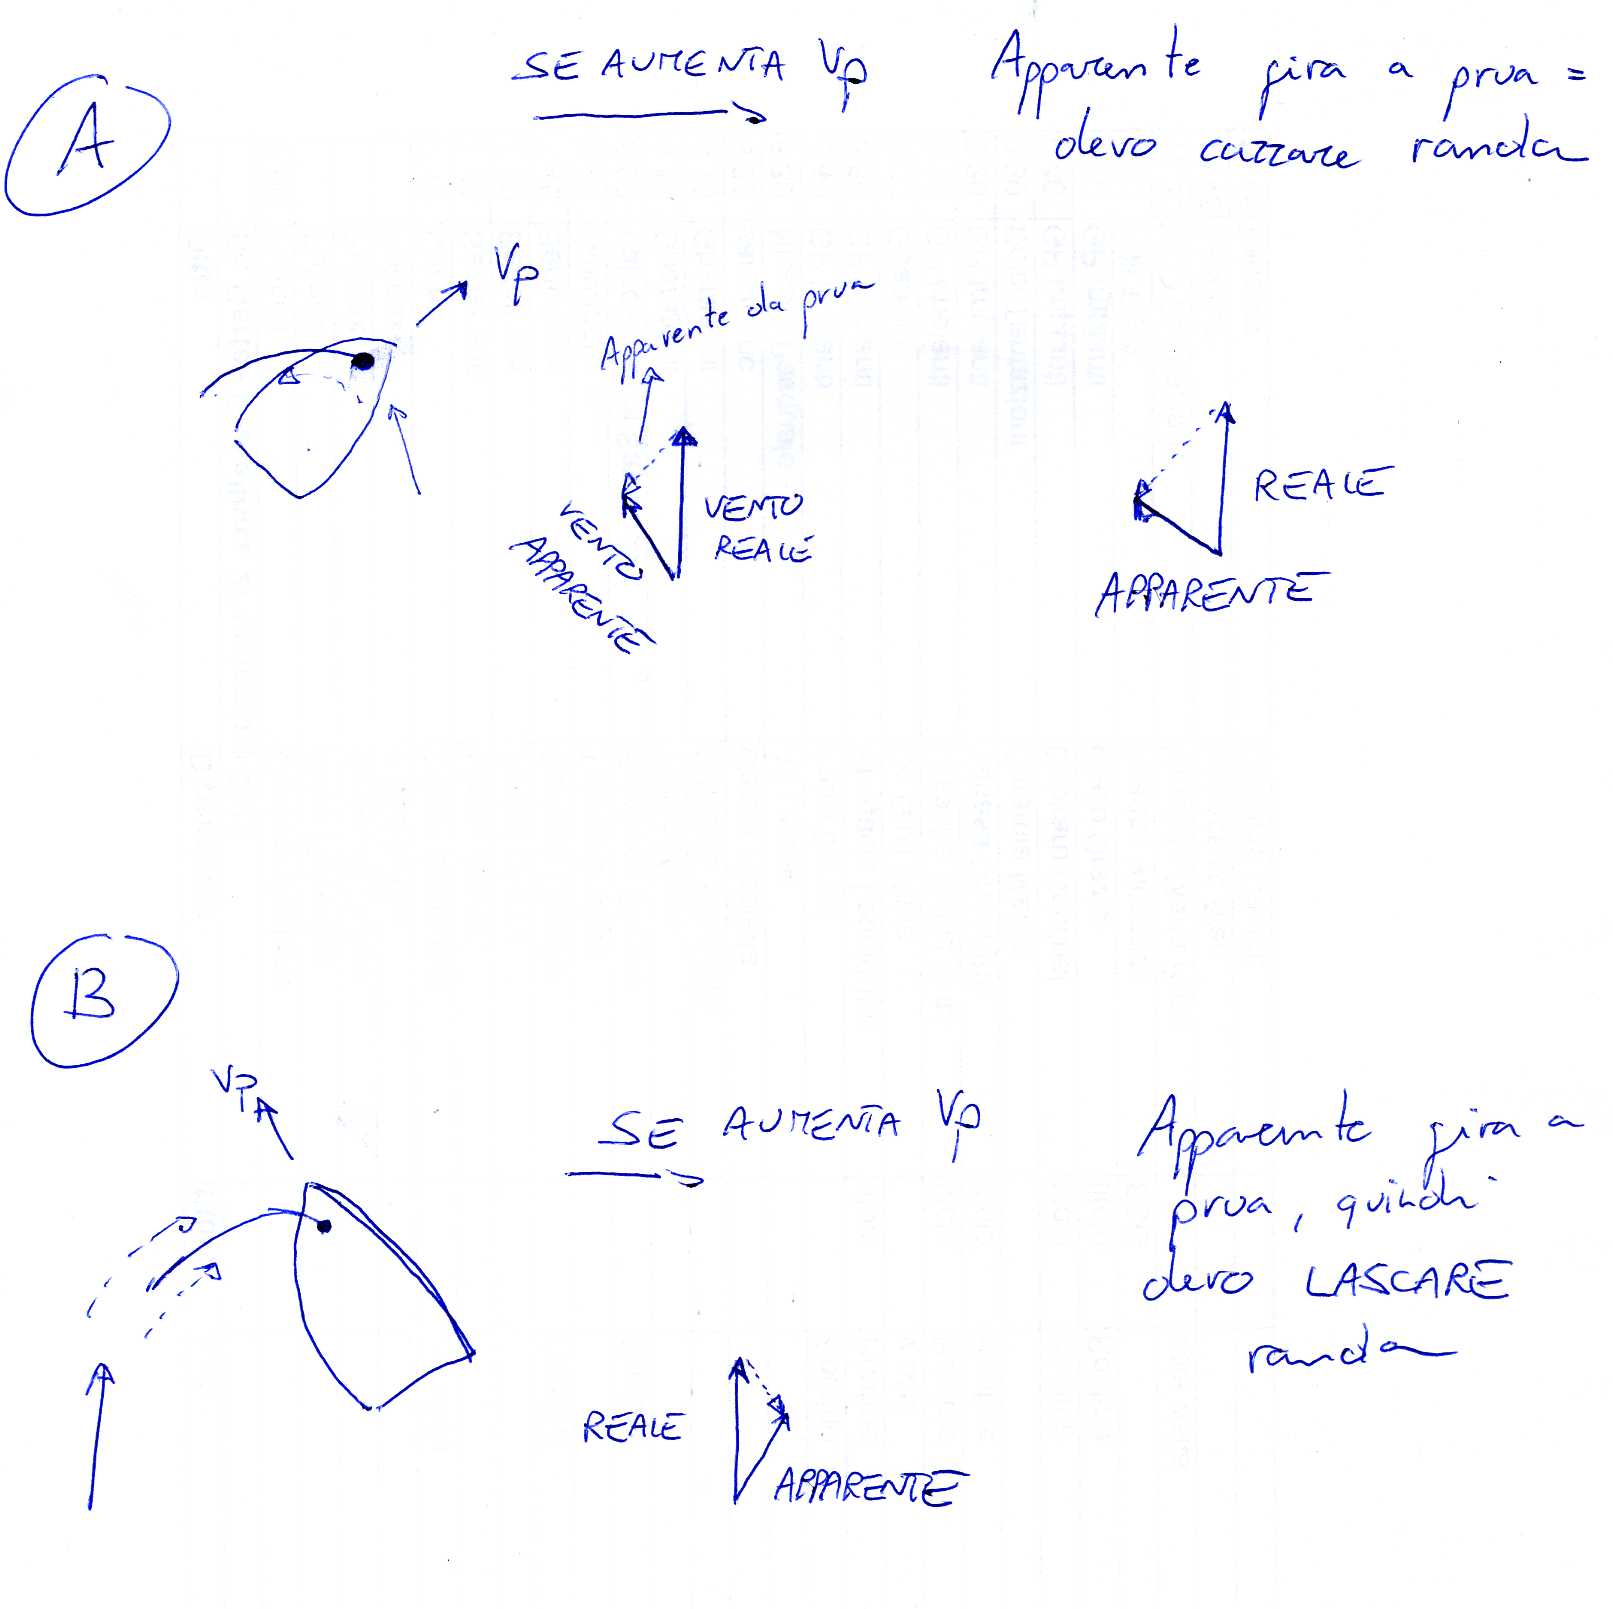 A
SE AUMENTA Vp
Apparente gira a prua =
devo cazzare randa
Vp
Apparente da prua
VENTO
REALE
VENTO
APPARENTE
REALE
APPARENTE
B
Vp
SE AUMENTA Vp
Apparente gira a
prua, quindi
devo LASCARE
randa
REALE
APPARENTE